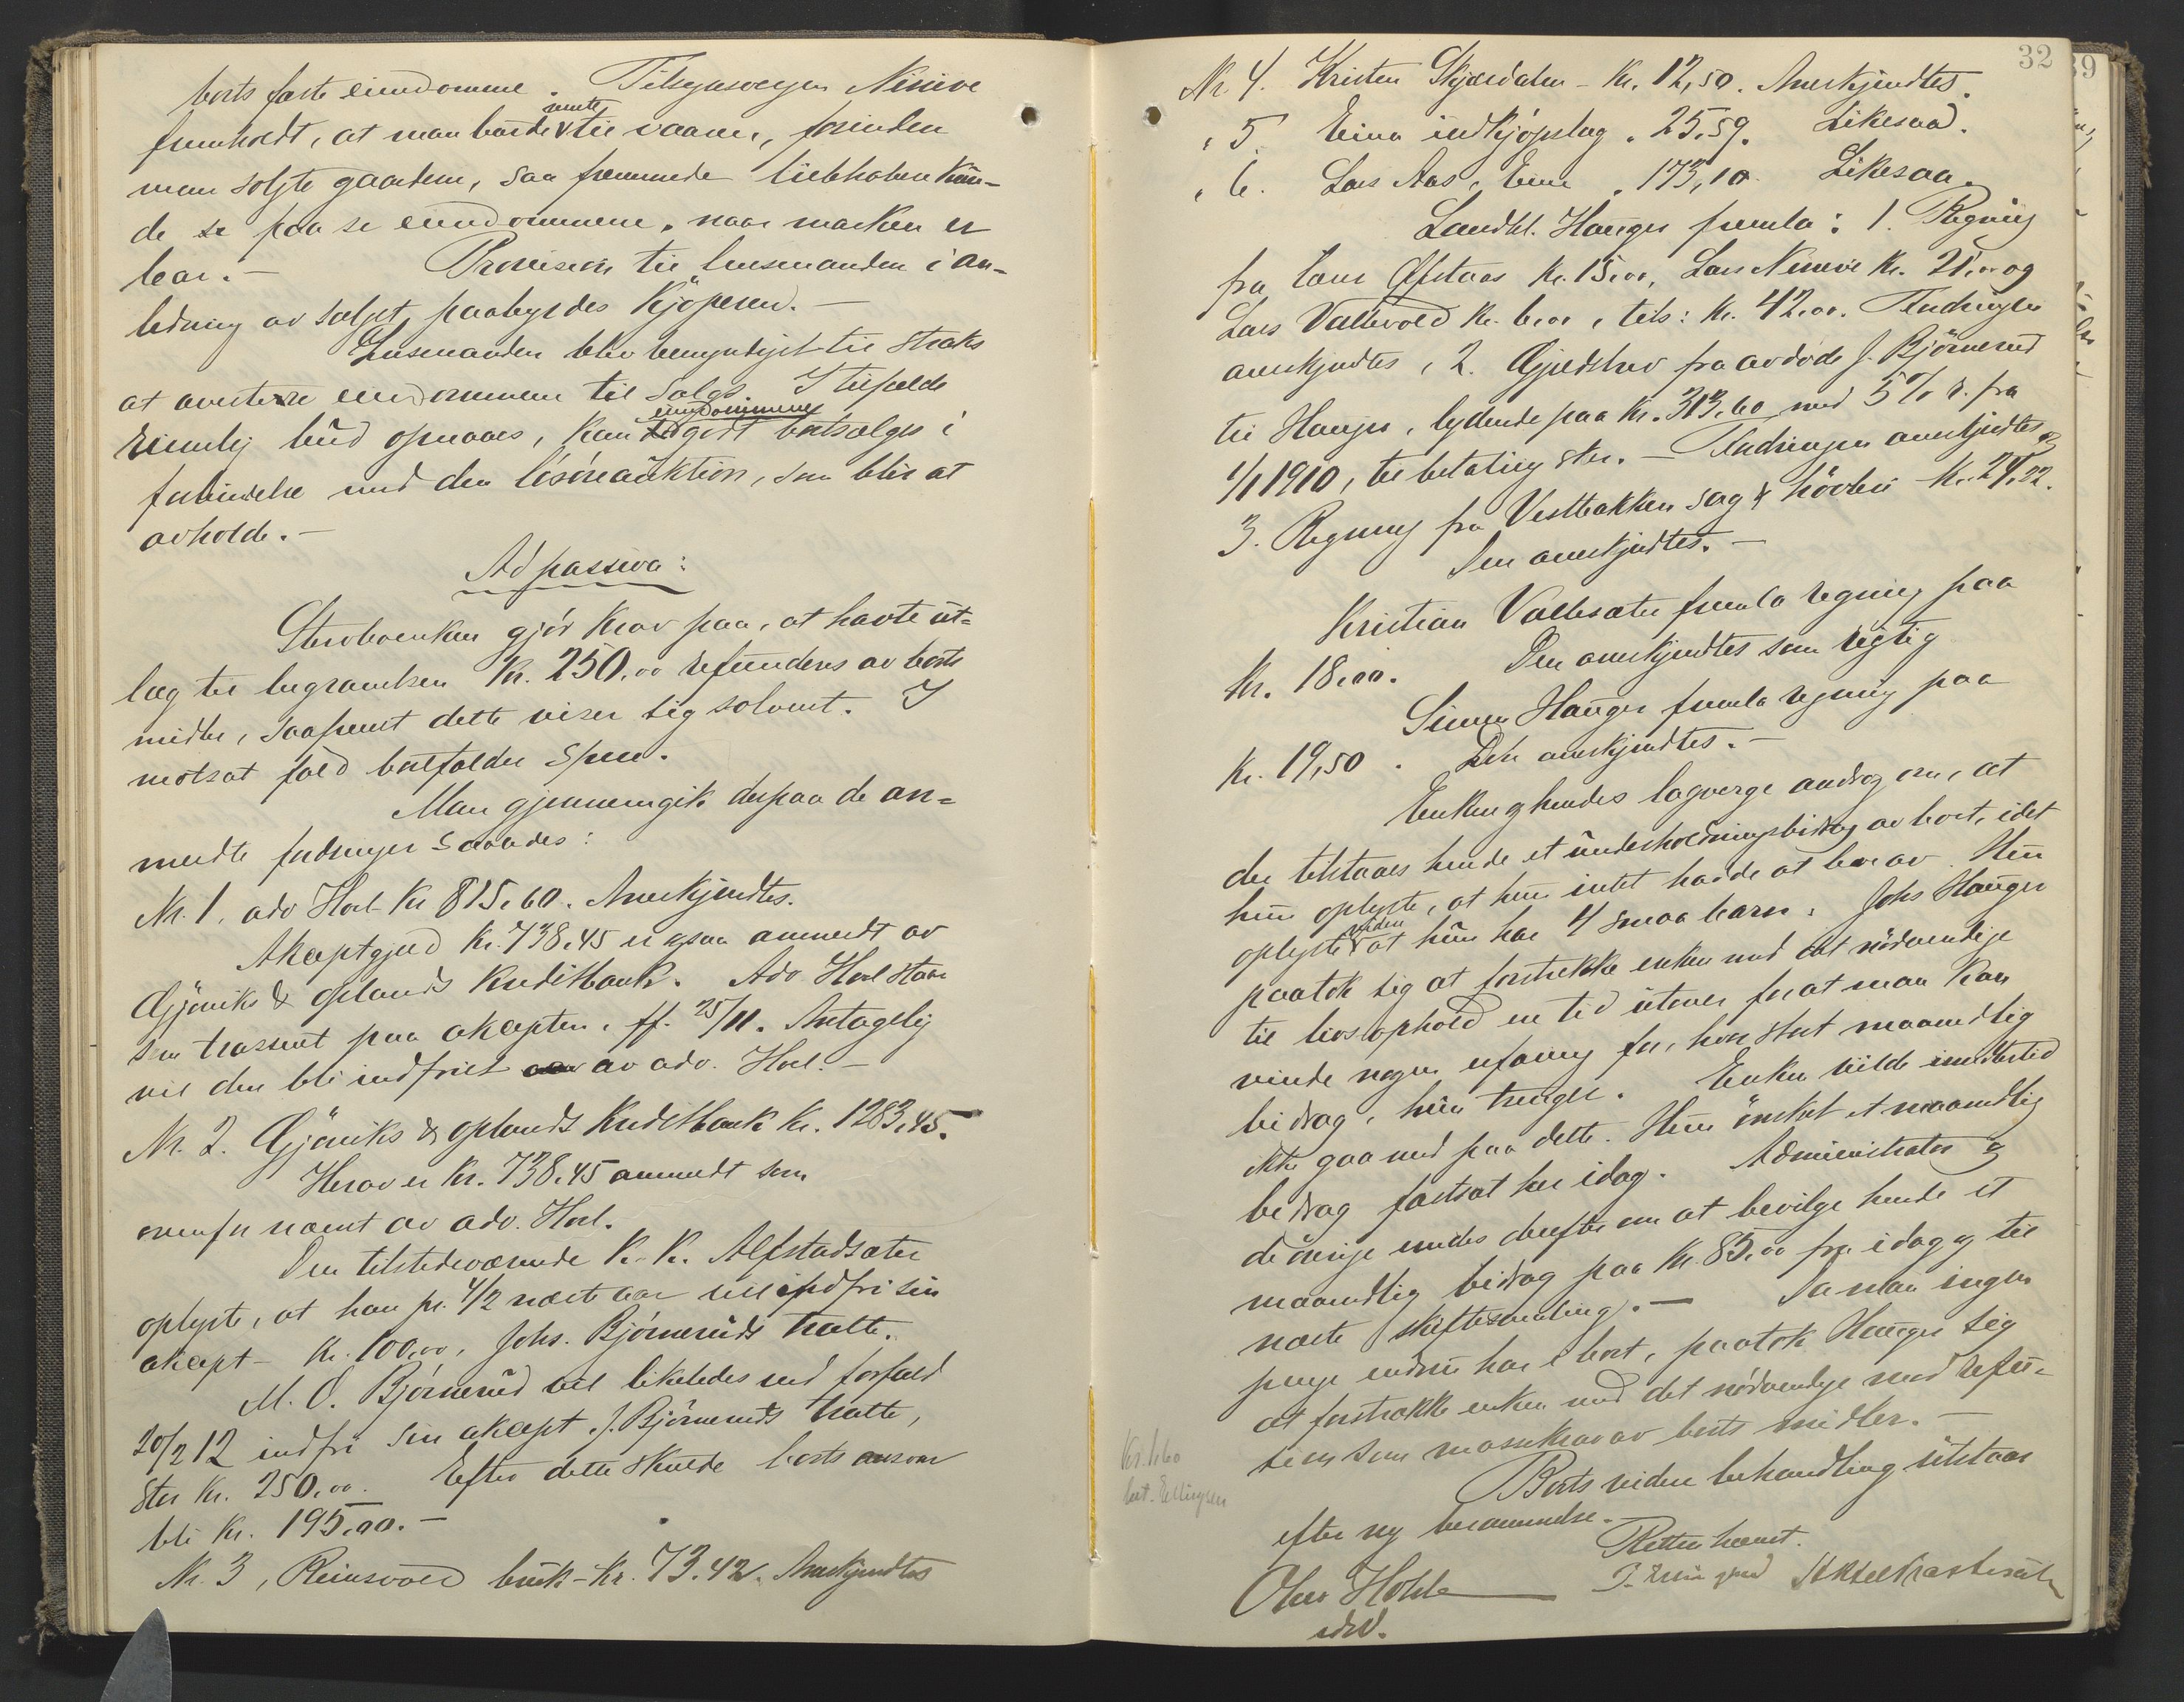 boets faste eiendomme. Tilsynsvergen Ninive
fremholdt, at man burde vente til vaaren, forinden
man solgte gaarden, saa fremmede liebhabere kun-
de se paa se eiendommene, naar marken er
bar.- Provision til lensmanden i an-
ledning av salget paabyrdes kjøperen.-
Lensmanden blev bemyndiget til straks
at avertere eiendommene til salgs. I tilfælde
rimelig bud opnaaes, kan eiendommene godt bortsælges i
forbindelse med den løsøreauktion, som blir at
avholde.-
Ad passiva:
Sterboenken gjør krav paa, at havte ut-
læg til begravelsen Kr. 250.00 refunderes av boets
midler, saafremt dette viser sig solvent. I
motsat fald bortfalder
Man gjennemgik derpaa de an-
meldte fordringer saaledes:
Nr. 1, adv Hoel Kr 815.60. Anerkjendtes.
Akceptgjæld Kr. 738.45 er ogsaa anmeldt av
Gjøviks & Oplands Kreditbank. Adv Hoel staar
som trassent paa akcepten, ff. 25/11. Antagelig
vil den bli indfriet av adv. Hoel.-
Nr. 2. Gjøviks & Oplands Kreditbank Kr. 1283.45.
Herav er Kr. 738.45 anmeldt som
ovenfor nævnt av adv. Hoel.
Den tilstedeværende K. K. Alfstadsæter
oplyste, at han pr. 4/2 næste aar vil indfri sin
akcept - Kr. 100,00, Johs. Bjørnerud's tratte.
M. O. Bjørnerud vil likeledes ved forfald
20/2 12 indfri sin akcept J. Bjørneruds tratte,
stor Kr. 250.00. Efter dette skulde boets ansvar
bli Kr. 195.00.-
Nr. 3, Reinsvold bruk - Kr. 73.42. Anerkjendtes
32
39
Nr. 4. Kristen Skjærdalen - Kr. 12,50. Anerkjendtes.
" 5 Eina indkjøpslag " 25.59. Likesaa.
" 6. Lars Aas, Eina " 173,10. Likesaa.
Landhl. Hauger fremla: 1. Regning
fra Hans Kr. 15.00, Lars Ninive Kr. 21.00 og
Lars Vallevold Kr. 6.00, tils: Kr. 42.00. Fordringen
anerkjendtes, 2. Gjældsbrev fra avdøde J. Bjørnerud
til Hauger, lydende paa Kr. 313.60 med 5% r. fra
1/1 1910, til betaling sker.- Fordringen anerkjendtes og
3. Regning fra Vestbakken sag & høvleri Kr. 24.22.
Den anerkjendtes.-
Kristian Vallesæter fremla regning paa
Kr. 18.00. Den anerkjendtes som rigtig
Simen Hauger fremla regning paa
Kr. 19,50. Den anerkjendtes.-
Enken og hendes lagverge androg om, at
der tilstaaes hende et underholdningsbidrag av boet, idet
hun oplyste, at hun intet havde at leve av. Hun
oplyste videre at hun har 4 smaa barn. Johs Hauger
paatok sig at forstrække enken med det nødvendige
til livsophold en tid utover for at man kan
vinde nogen erfaring for, hvor stort maanedlig
bidrag, hun trænger. Enken vilde imidlertid
ikke gaa med paa dette. Hun ønsket et maanedlig
bidrag fastsat her idag. Administrator og
de øvrige enedes derefter om at bevilge hende et
maanedlig bidrag paa Kr. 85.00 fra idag og til
næste skiftesamling.- Da man ingen
penge endnu har i boet, paatok Hauger sig
at forstrække enken med det nødvendige mod refu-
sion som massekrav av boets midler.-
Boets videre behandling utstaar
efter ny berammelse.
Retten hævet.
Kr. 1.60
bet. Ellingsen
Olav Hohle